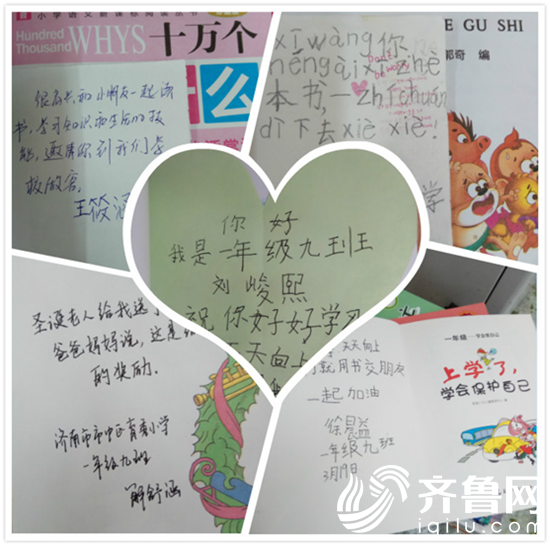 小学语文新课标阅读丛书
Hundred
Thousand WHYS 十万个
什么
很高兴和小朋友一起读
书，学习知识和生活的技
能，邀请你到我们学
校做客。
王筱涵
xī wàng 你
néng ài xī zhè
本书，一 zhí chuán
dì 下去 xiè xiè！
Don't
be worry
E GU SHI
郭奇 编
学
你 好
我是一年级九班王
刘峻熙
祝 你好好学习
天天向上
圣诞老人给我送了
爸爸妈妈说，这是给
的奖励。
济南市市中区育秀小学
一年级九班
解舒涵
天天向上
就用书交朋友
一起加油
徐晨益
一年级九班
3月9日
一年级
上学了，
学会保护自己
齐鲁网
iqilu.com